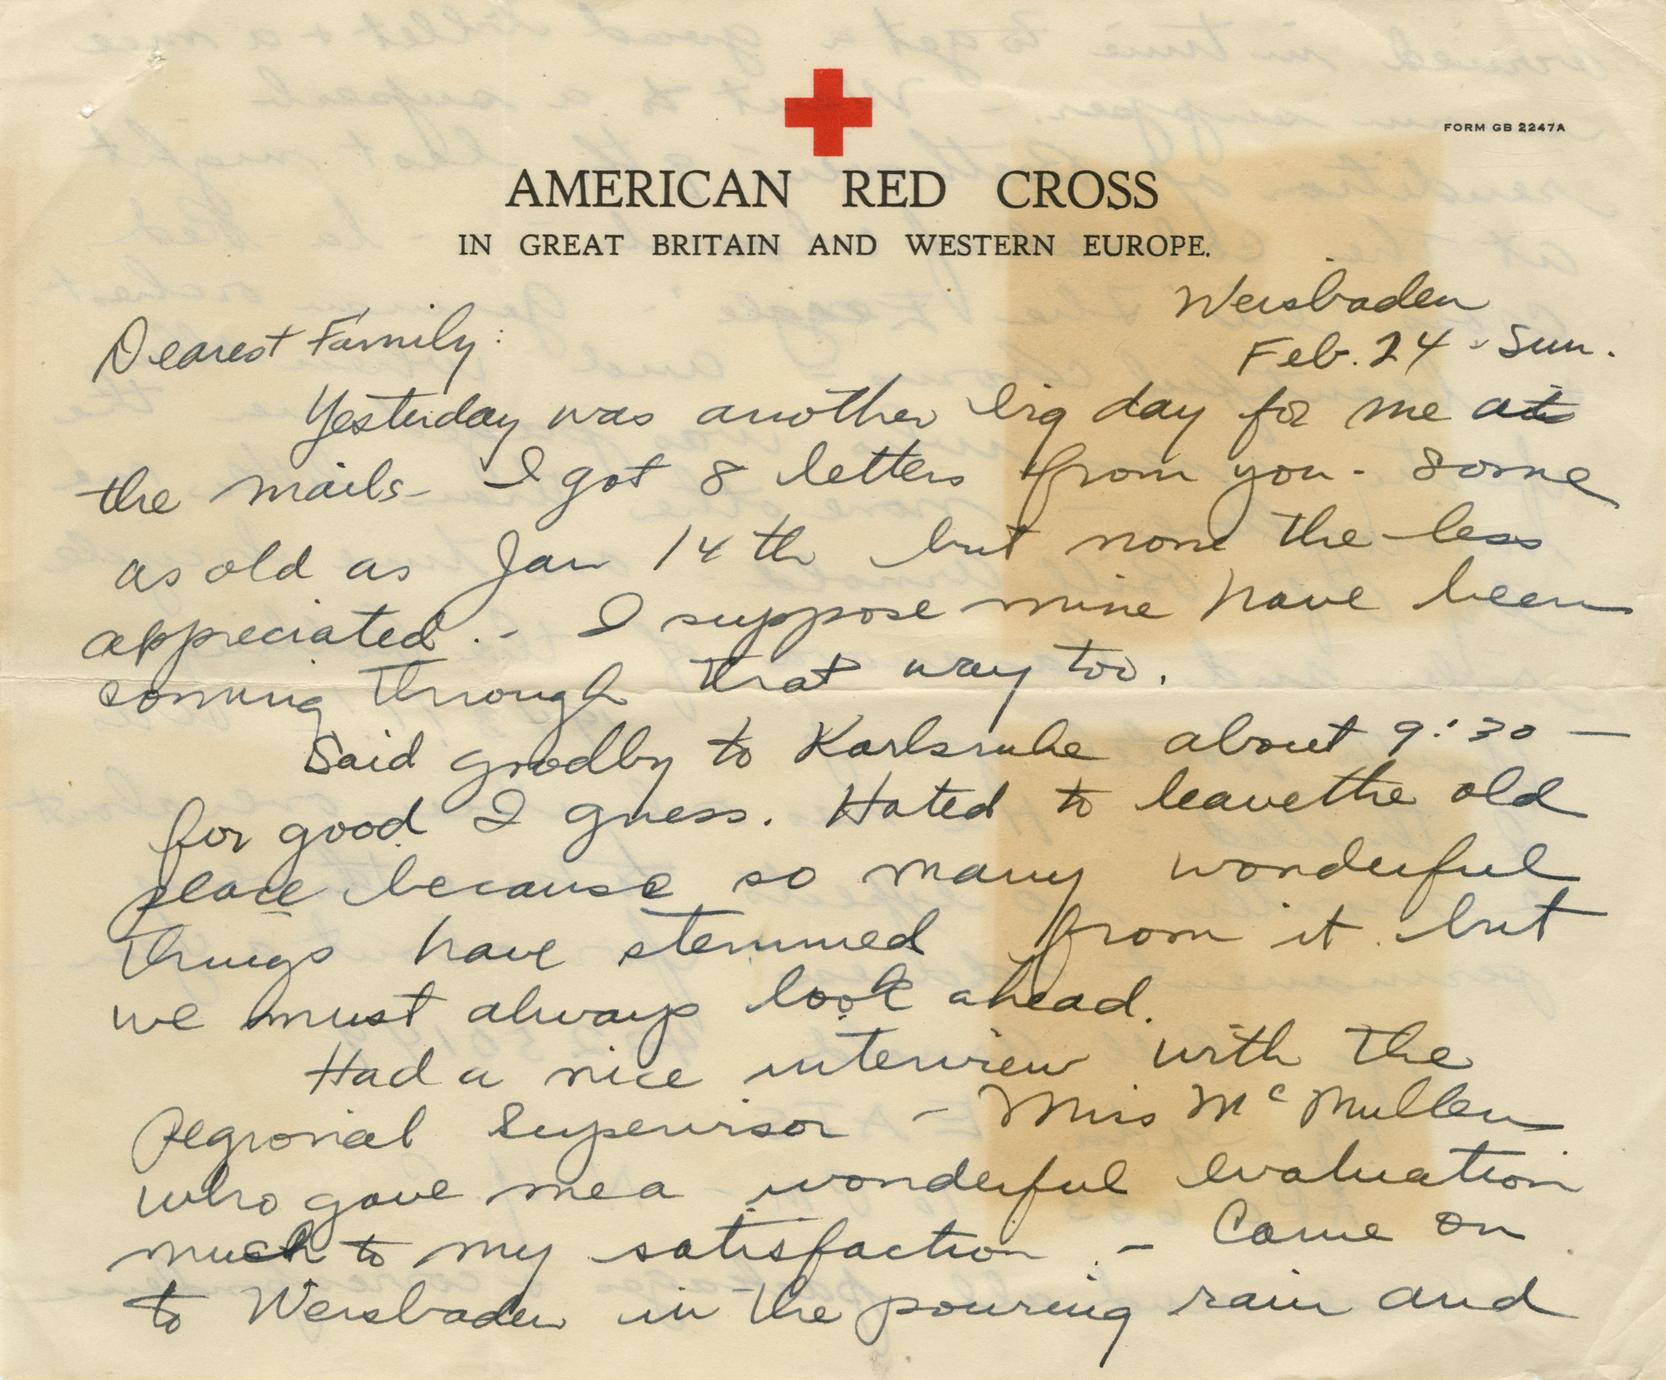 FORM GB 2247A
AMERICAN RED CROSS
IN GREAT BRITAIN AND WESTERN EUROPE.
Weisbaden
Feb. 24 - Sun.
Dearest Family:
Yesterday was another big day for me
the mails - I got 8 letters from you - some
as old as Jan 14th but none the less
appreciated. - I suppose mine have been
coming through that way too.
Said goodby to Karlsruhe about 9:30 —
for good I guess. Hated to leave the old
place because so many wonderful
things have stemmed from it but
we must always look ahead.
Had a nice interview with the
Regional Supervisor - Miss McMullen
who gave me a wonderful evaluation
much to my satisfaction. - Came on
to Weisbaden in the pouring rain and